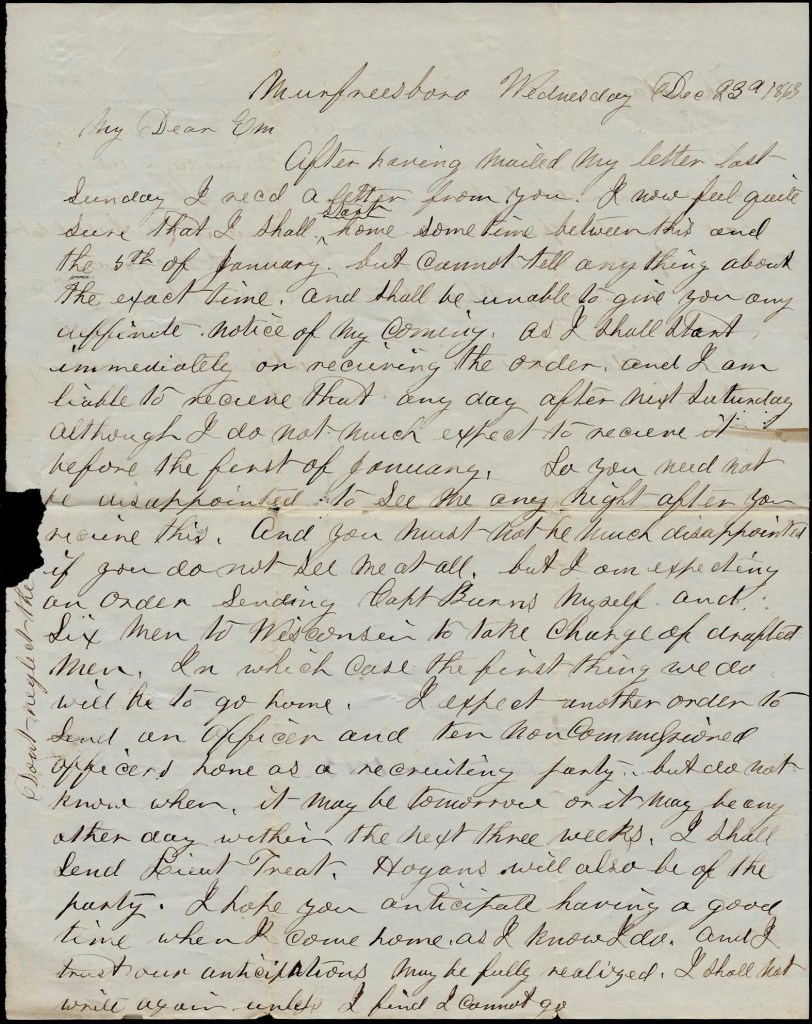 Murfreesboro Wednesday Dec 23d 1863
My Dear Em
After having mailed my letter last
Sunday I recd a letter from you. I now feel quite
sure that I shall start home some time between this and
the 5th of January. but cannot tell any thing about
the exact time. and shall be unable to give you any
notice of my coming. as I shall start
immediately on recieving the order. and I am
liable to recieve that any day after next Saturday
although I do not much expect to recieve it
before the first of January. So you need not
be disappointed to see me any night after you
recieve this. And you must not be much disappointed
if you do not see me at all. but I am expecting
an order sending Capt Burns myself and
six men to Wisconsin to take charge of drafted
men. In which case the first thing we do
will be to go home. I expect another order to
send an officer and ten non commissioned
officers home as a recruiting party.. but do not
know when. it may be tomorrow or it may be any
other day within the next three weeks. I shall
send Lieut Treat. Hogans will also be of the
party. I hope you anticipate having a good
time when I come home. as I know I do. and I
trust our anticipations may be fully realized. I shall not
write again unless I find I cannot go
Dont neglect the